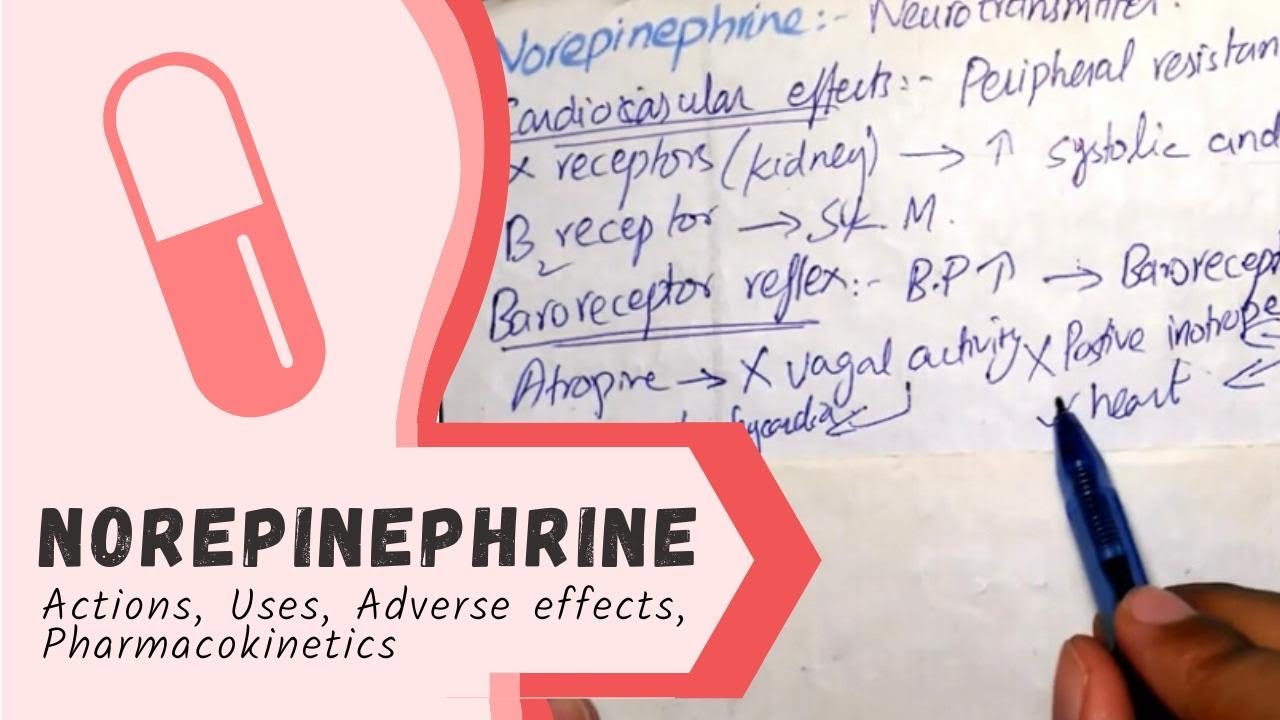 Norepinephrine:- Neurotransmitter.
Cardiovascular effects:- Peripheral resistan
receptors (kidney) → ↑ systolic and
B2 receptor → Sk. M.
Baroreceptor reflex:- B.P ↑ → Barorecept
Atropine → X vagal activity X Postive inotrope
heart
NOREPINEPHRINE
Actions, Uses, Adverse effects,
Pharmacokinetics